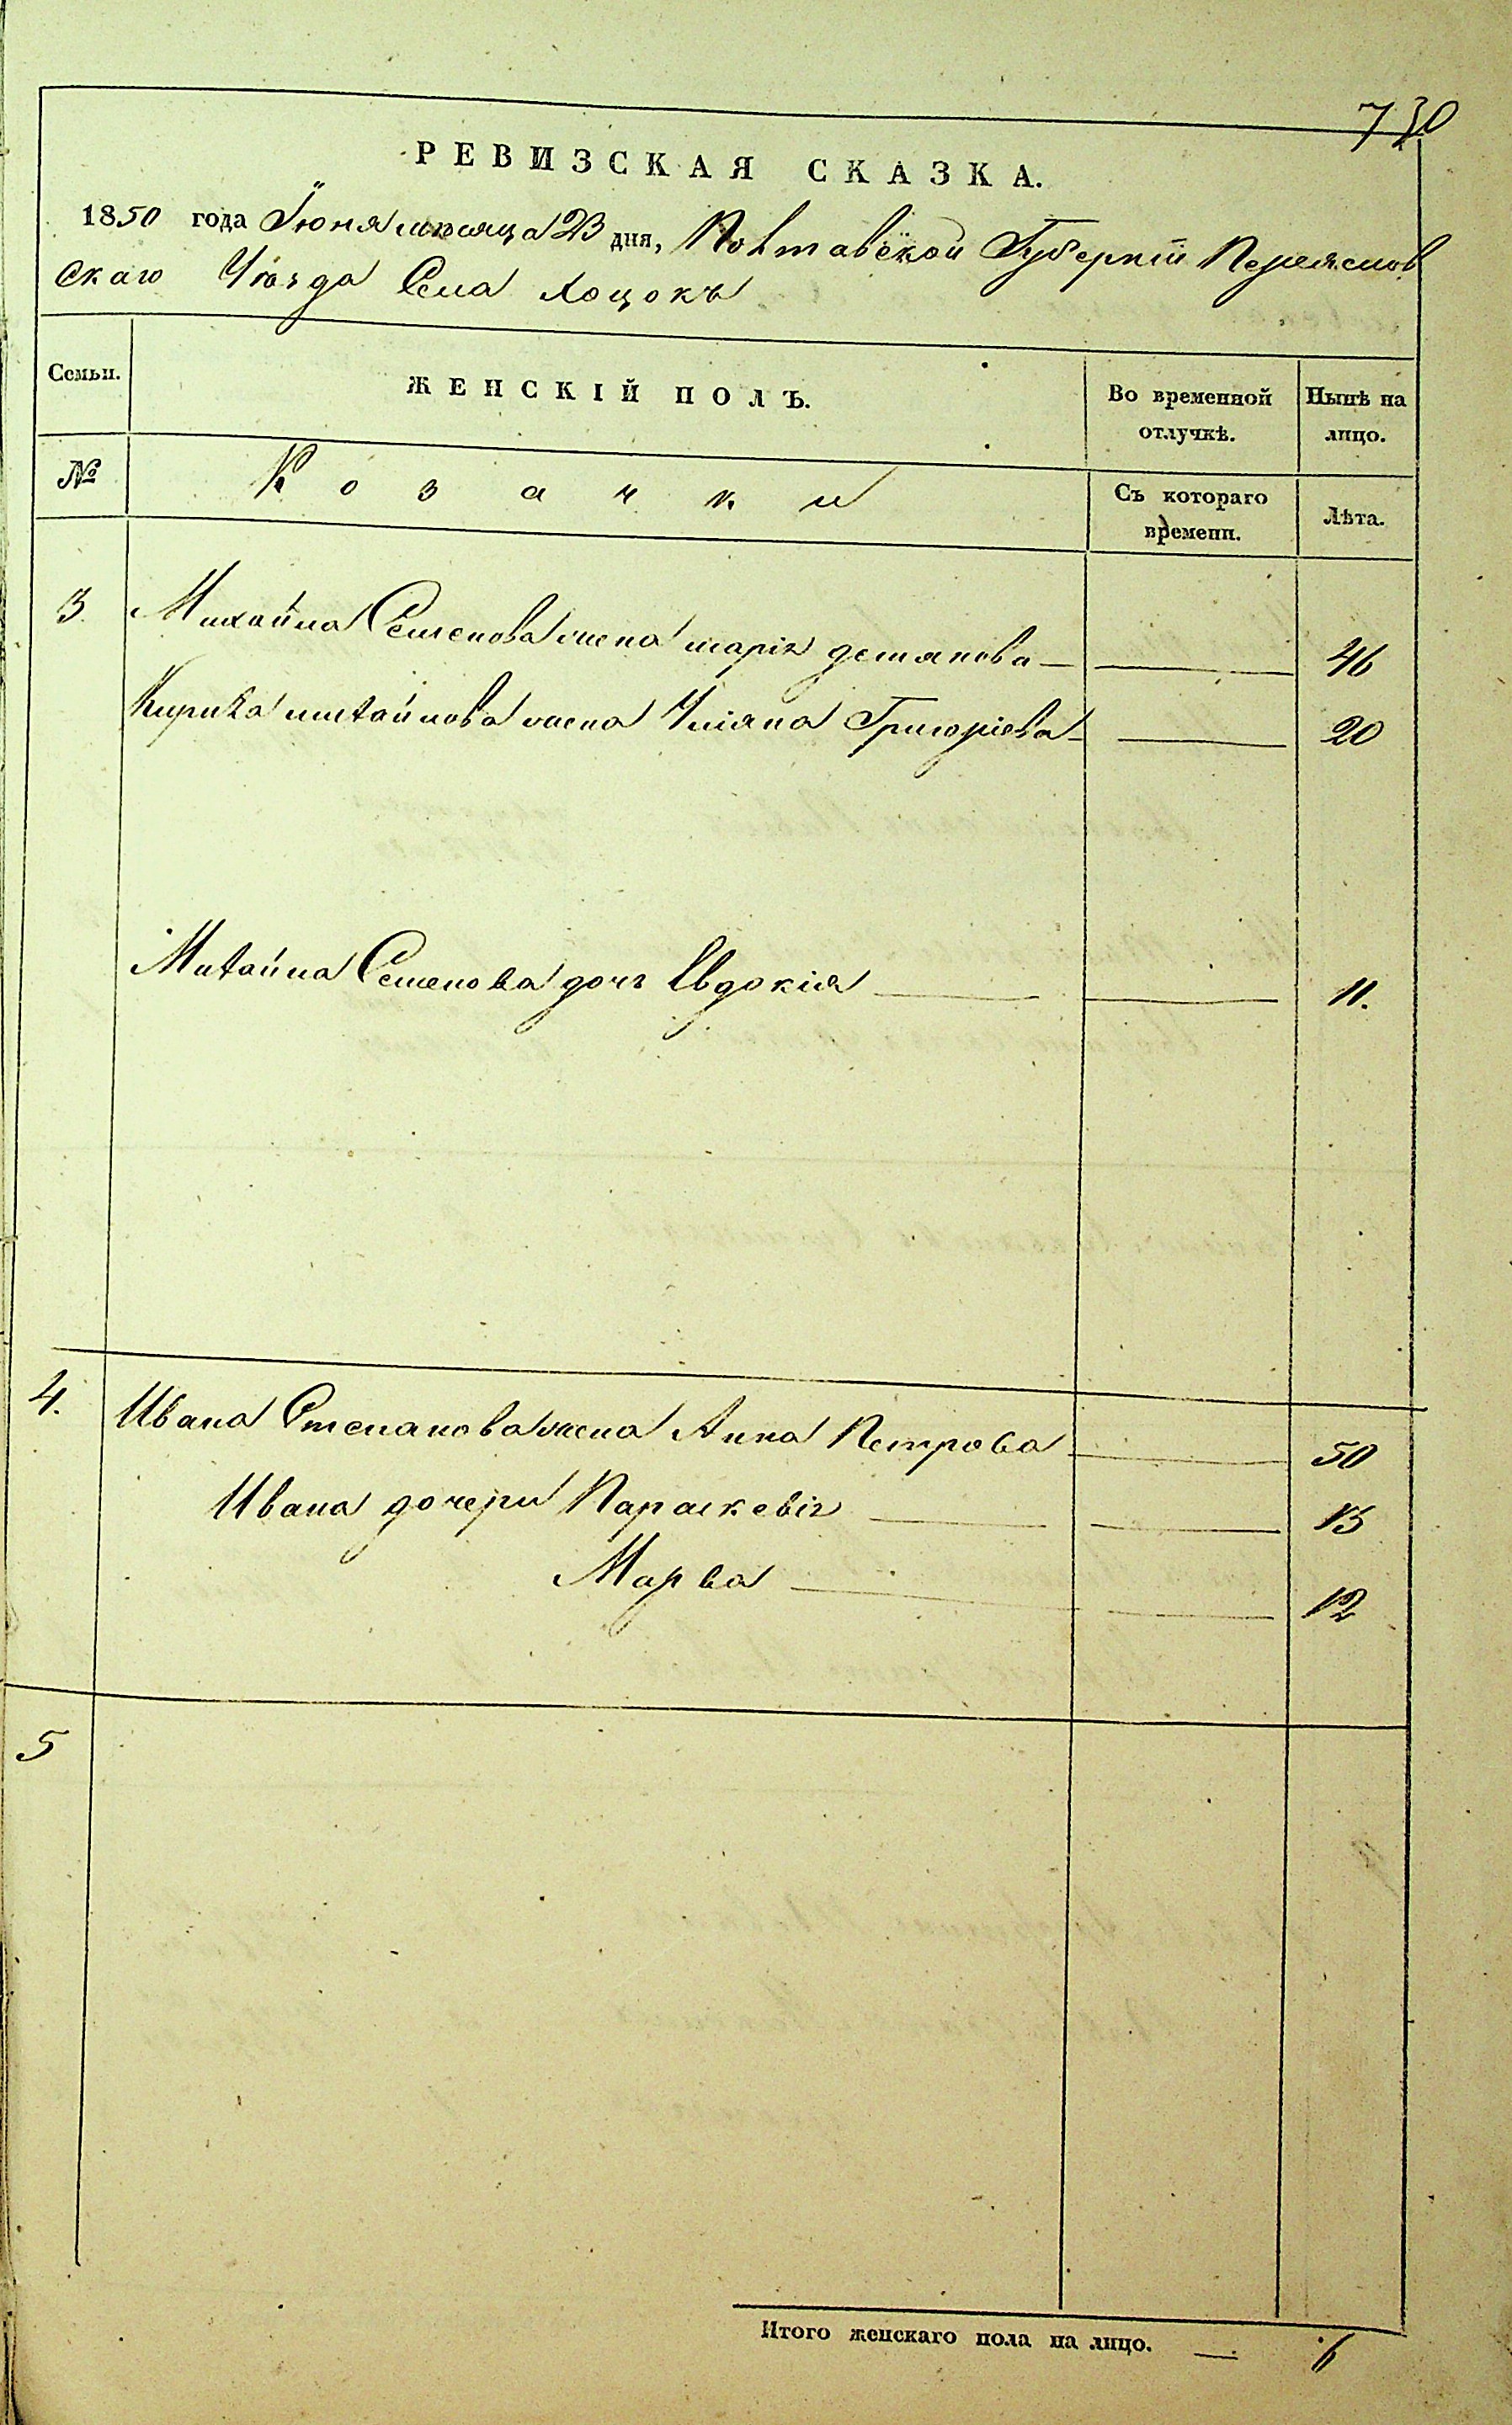 730
РЕВИЗСКАЯ СКАЗКА.
1850 года Іюня месяца 23 дня, Полтавской Губерніи Переяслов
скаго Уѣзда Села Хоцокъ
Семьи. ЖЕНСКІЙ ПОЛЪ. Во временной отлучкѣ. Нынѣ на лицо.
№ Козачки Съ котораго времени. Лѣта.
3. Михайла Семенова жена марія демянова — — 46
Кирила михайлова жена Уліяна Григоріева — — 20
Михайла Семенова дочь Евдокія — — 11.
4. Ивана Степанова жена Анна Петрова — 50
Ивана дочери Параскевія — — 15
Марва — — 12
5
Итого женскаго пола на лицо. — 6